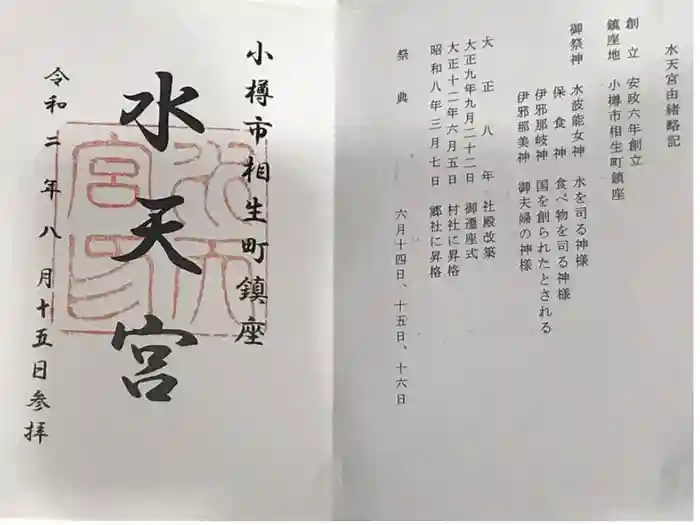 水天宮由緒略記
創立 安政六年創立
鎮座地 小樽市相生町鎮座
御祭神 水波能女神 水を司る神様
保食神 食べ物を司る神様
伊邪那岐神 国を創られたとされる
伊邪那美神 御夫婦の神様
大正八年 社殿改築
大正九年九月二十二日 御遷座式
大正十二年六月五日 村社に昇格
昭和八年三月七日 郷社に昇格
祭典 六月十四日、十五日、十六日
小樽市相生町鎮座
水天宮
水天宮印
令和二年八月十五日参拝